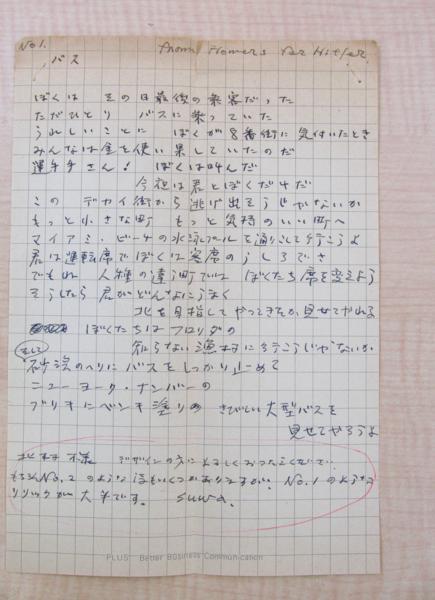 No 1.
from Flowers for Hitler
バス
ぼくは その日最後の乗客だった
ただひとり バスに乗っていた
うれしいことに ぼくが8番街に気付いたとき
みんなは金を使い果していたのだ
運転手さん! ぼくは叫んだ
今夜は君とぼくだけだ
この デカイ街から逃げ出そうじゃないか
もっと小さな町 もっと気持のいい町へ
マイアミ・ビーチの水泳プールを通りこして行こうよ
君は運転席でぼくは客席のうしろでさ
でもね 人種の違う町では ぼくたち席を変えよう
そうしたら 君がどんなにうまく
北を目指してやってきたか見せてやれる
ぼくたちは フロリダの
知らない漁村に行こうじゃないか
そして
砂浜のへりに バスをしっかり止めて
ニューヨーク・ナンバーの
ブリキにペンキ塗りの さびしい大型バスを
見せてやろうよ
北村様 デザインの方によろしくおつたえください
もちろんNo.2のような ありますが、No.1のような
リリックが大半です。 suwa.
PLUS Better Business Communication